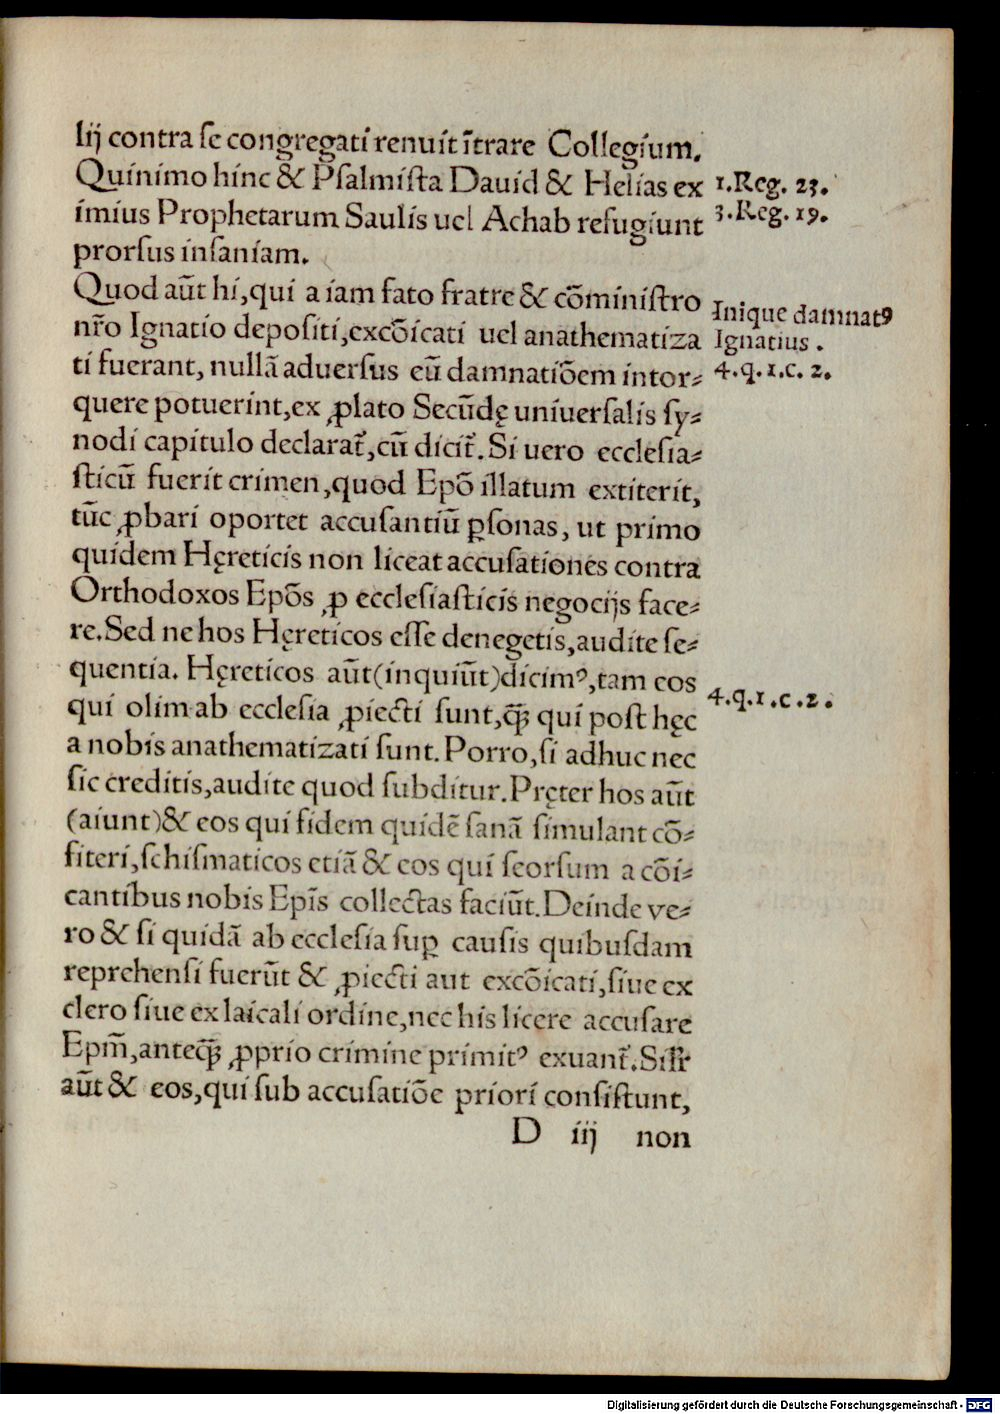 Iij contra se congregati renuit ĩtrare Collegium.
Quinimo hinc & Psalmista Dauid & Helias ex
imius Prophetarum Saulis uel Achab refugiunt
prorsus insaniam.
Quod aũt hi, qui a iam fato fratre & cõministro
nr̃o Ignatio depositi, excõicati uel anathematiza
ti fuerant, nullã aduersus eũ damnatiõem intor⸗
quere potuerint, ex ꝓlato Secũdę uniuersalis sy⸗
nodi capitulo declarat᷑, cũ dicit᷑. Si uero ecclesia⸗
sticũ fuerit crimen, quod Epõ illatum extiterit,
tũc ꝓbari oportet accusantiũ ꝑsonas, ut primo
quidem Hęreticis non liceat accusationes contra
Orthodoxos Epõs ꝓ ecclesiasticis negocijs face⸗
re. Sed ne hos Hęreticos esse denegetis, audite se⸗
quentia. Hęreticos aũt (inquiũt) dicimꝰ, tam eos
qui olim ab ecclesia ꝓiecti sunt, q̃ꝫ qui post hęc
a nobis anathematizati sunt. Porro, si adhuc nec
sic creditis, audite quod subditur. Pręter hos aũt
(aiunt) & eos qui fidem quidẽ sanã simulant cõ⸗
fiteri, schismaticos etiã & eos qui seorsum a cõi⸗
cantibus nobis Epĩs collectas faciũt. Deinde ve⸗
ro & si quidã ab ecclesia suꝑ causis quibusdam
reprehensi fuerũt & ꝓiecti aut excõicati, siue ex
clero siue ex laicali ordine, nec his licere accusare
Epm̃, anteq̃ꝫ ꝓprio crimine primitꝰ exuant᷑. Sil̃r
aũt & eos, qui sub accusatiõe priori consistunt,
D iij non
1. Reg. 23.
3. Reg. 19.
Inique damnatꝰ
Ignatius.
4. q. 1. c. 2.
4. q. 1. c. 2.
Digitalisierung gefördert durch die Deutsche Forschungsgemeinschaft - DFG